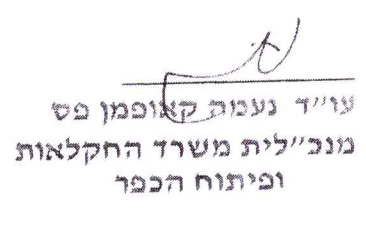 עו״ד נעמה קאופמן פס
מנכ״לית משרד החקלאות
ופיתוח הכפר